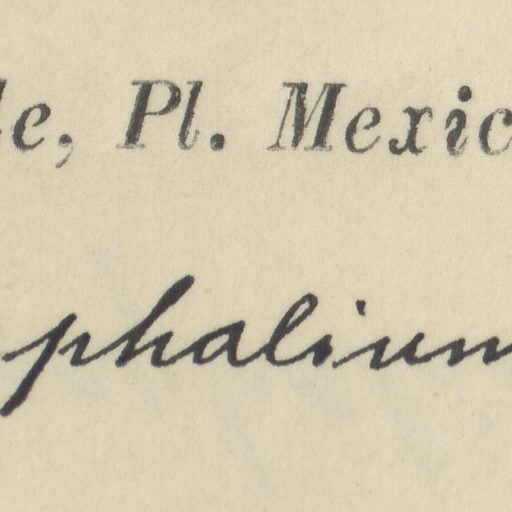 le, Pl. Mexic
phalium